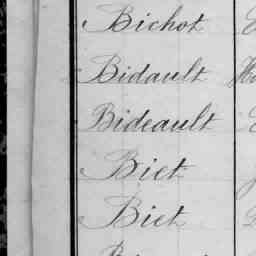 Bichot
Bidault
Bideault
Biet
Biet